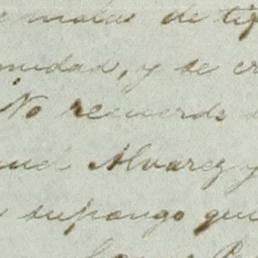 malas de
nidad, y se
No recuerdo
uel Alvarez y
supongo que